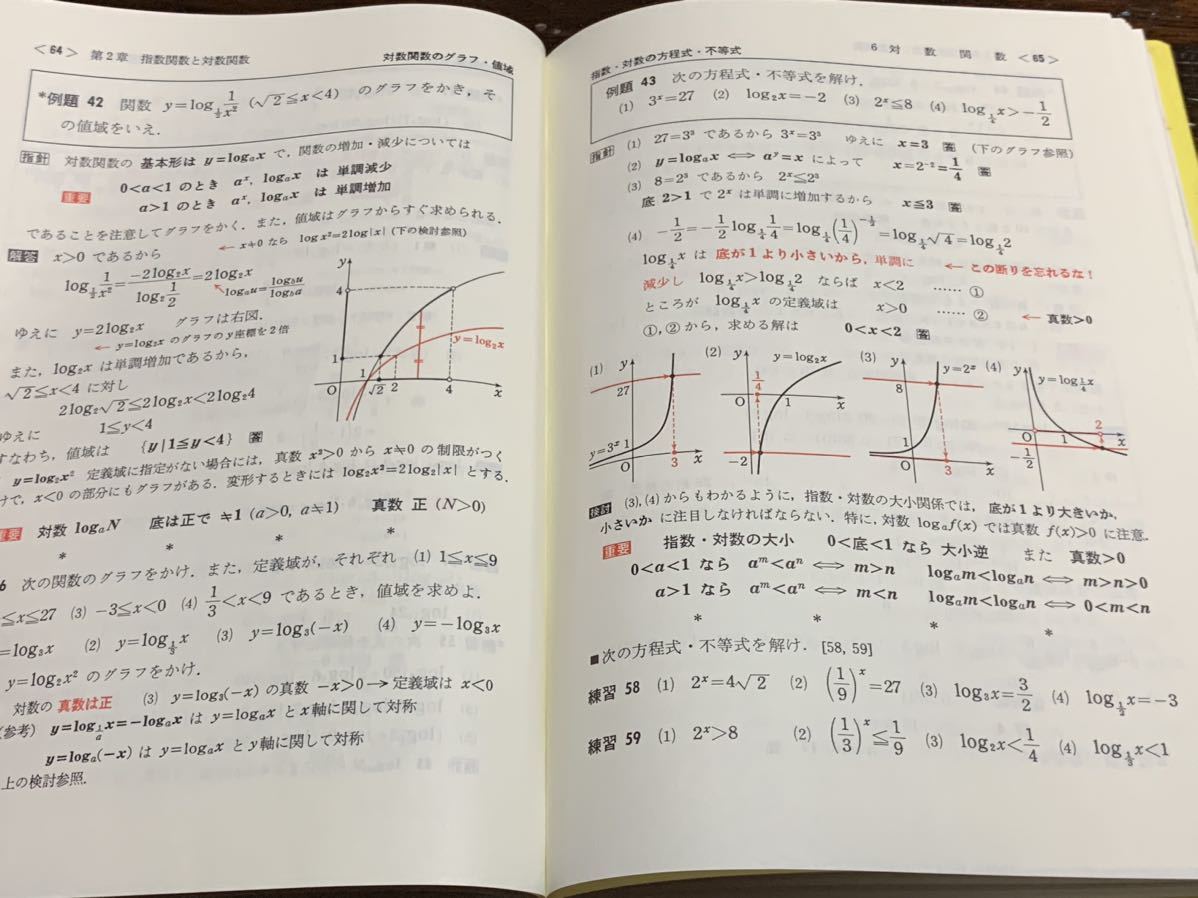 <64> 第2章 指数関数と対数関数 対数関数のグラフ・値域
*例題 42 関数 y=log_{1/2} 1/x² (√2≦x<4) のグラフをかき，そ
の値域をいえ．
指針 対数関数の 基本形は y=logₐx で，関数の増加・減少については
重要 0<a<1 のとき aˣ, logₐx は 単調減少
a>1 のとき aˣ, logₐx は 単調増加
であることを注意してグラフをかく．また，値域はグラフからすぐ求められる．
← x≠0 なら log x²=2log|x| (下の検討参照)
解答 x>0 であるから
log_{1/2} 1/x² = -2log₂x / log₂ 1/2 = 2log₂x
logₐu = log_b u / log_b a
ゆえに y=2log₂x グラフは右図．
← y=log₂x のグラフの y座標を2倍
また，log₂x は単調増加であるから，
√2≦x<4 に対し
2log₂√2≦2log₂x<2log₂4
ゆえに 1≦y<4
すなわち，値域は {y|1≦y<4} 答
y 4 1 O 1 √2 2 4 x y=log₂x
y=log₂x² 定義域に指定がない場合には，真数 x²>0 から x≠0 の制限がつく
けで，x<0 の部分にもグラフがある．変形するときには log₂x²=2log₂|x| とする．
重要 対数 logₐN 底は正で ≠1 (a>0, a≠1) 真数 正 (N>0)
* * * *
6 次の関数のグラフをかけ．また，定義域が，それぞれ (1) 1≦x≦9
≦x≦27 (3) -3≦x<0 (4) 1/3<x<9 であるとき，値域を求めよ．
=log₃x (2) y=log_{1/3}x (3) y=log₃(-x) (4) y=-log₃x
y=log₂x² のグラフをかけ．
対数の 真数は正 (3) y=log₃(-x) の真数 -x>0 → 定義域は x<0
(参考) y=log_{1/a}x=-logₐx は y=logₐx と x軸に関して対称
y=logₐ(-x) は y=logₐx と y軸に関して対称
上の検討参照．
指数・対数の方程式・不等式 6 対 数 関 数 <65>
例題 43 次の方程式・不等式を解け．
(1) 3ˣ=27 (2) log₂x=-2 (3) 2ˣ≦8 (4) log_{1/4}x>-1/2
指針 (1) 27=3³ であるから 3ˣ=3³ ゆえに x=3 答 (下のグラフ参照)
(2) y=logₐx ⟺ aʸ=x によって x=2⁻²=1/4 答
(3) 8=2³ であるから 2ˣ≦2³
底 2>1 で 2ˣ は単調に増加するから x≦3 答
(4) -1/2=-1/2 log_{1/4} 1/4=log_{1/4}(1/4)^{-1/2}=log_{1/4}√4=log_{1/4}2
log_{1/4}x は 底が1より小さいから，単調に ← この断りを忘れるな！
減少し log_{1/4}x>log_{1/4}2 ならば x<2 …… ①
ところが log_{1/4}x の定義域は x>0 …… ② ← 真数>0
①，②から，求める解は 0<x<2 答
(1) y 27 y=3ˣ 1 O 3 x
(2) y 1/4 O 1 x -2 y=log₂x
(3) y 8 y=2ˣ 1 O 3 x
(4) y y=log_{1/4}x O 1 2 x -1/2
検討 (3),(4)からもわかるように，指数・対数の大小関係では，底が1より大きいか，
小さいか に注目しなければならない．特に，対数 logₐf(x) では真数 f(x)>0 に注意．
重要 指数・対数の大小 0<底<1 なら 大小逆 また 真数>0
0<a<1 なら aᵐ<aⁿ ⟺ m>n logₐm<logₐn ⟺ m>n>0
a>1 なら aᵐ<aⁿ ⟺ m<n logₐm<logₐn ⟺ 0<m<n
* * * *
■次の方程式・不等式を解け．[58, 59]
練習 58 (1) 2ˣ=4√2 (2) (1/9)ˣ=27 (3) log₃x=3/2 (4) log_{1/2}x=-3
練習 59 (1) 2ˣ>8 (2) (1/3)ˣ≦1/9 (3) log₂x<1/4 (4) log_{1/3}x<1